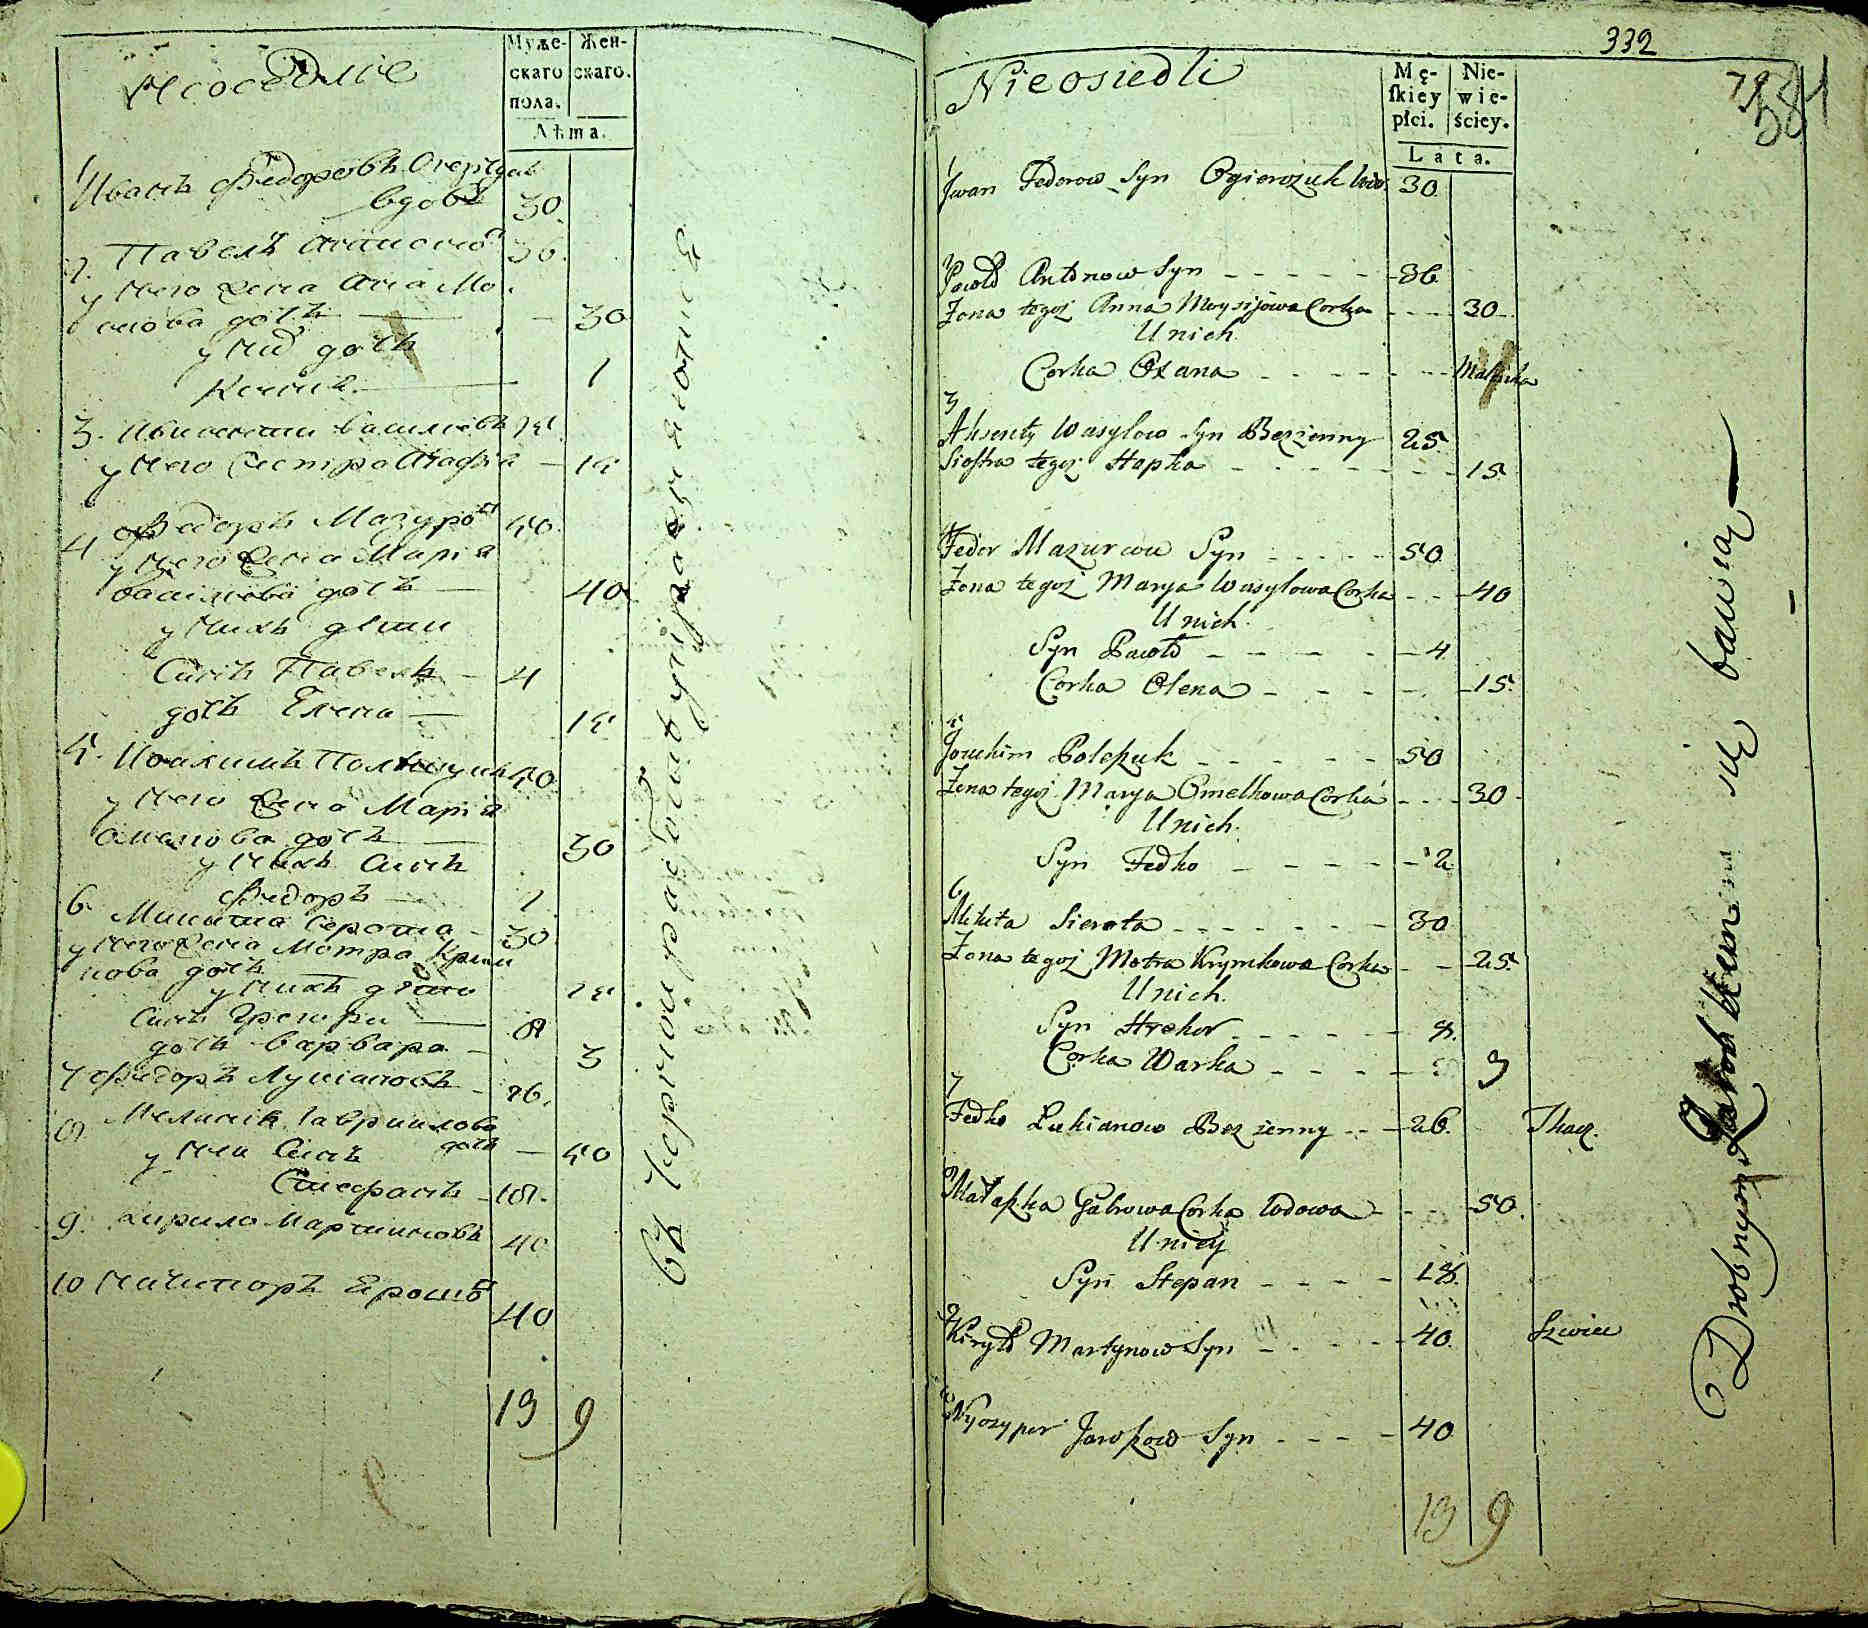 Неоседлие
Муже-
скаго
пола.
Жен-
скаго.
Лѣта.
1 Иванъ Федоровъ
вдовъ 30
2. Павелъ 36
у него жена Анна
дочь 30
у них дочь
1
3. Василиевъ 25
у него сестра Агафiа 15
4 Федоръ Мазуро 50
у него жена Марiа
дочь 40
у нихъ дети
Синъ Павелъ 4
дочь Елена 15
5. Иоахимъ 50
у него жена Марiа
дочь 30
у нихъ синъ
Федоръ 2
6. Микита Серота 30
у него жена Мотра
дочь 25
у нихъ дети
Синъ Грегори 8
дочь Варвара 3
7 Федоръ Лукiановъ 26.
8 Гавриилова
дочь 50
у неи Синъ
Стефанъ 18.
9. Кирило Мартиновъ 40
10 Ничипоръ 40
13 9
332
79
381
Nieosiedli
Mę-
skiey
płci.
Nie-
wie-
ściey.
Lata.
1
Jwan Fedorow Syn Ogierczuk Wdo: 30
2
Pawło Antonow Syn 36
Żona tegoż Anna Moysijowa Corka 30
U nich
Corka Oxana
3
Aksenty Wasylow Syn Bezżenny 25
Siostra tegoż Hapka 15
4
Fedor Mazurow Syn 50
Żona tegoż Marya Wasylowa Corka 40
U nich.
Syn Pawło 4
Corka Olena 15
5
Joachim Poleszuk 50
Żona tegoż Marya Omelkowa Corka 30
U nich.
Syn Fedko 2
6
Mikita Sierota 30
Żona tegoż Motra Krymkowa Corka 25
U nich.
Syn Hrehor 8
Corka Warka 3
7
Fedko Łukianow Bezżenny 26. Tkacz.
8
Małaszka Gabrowa Corka Wdowa 50
U niey
Syn Stepan 18
9
Kiryło Martynow Syn 40 Szwiec
10
Nyczypor Jaroszow Syn 40
13 9
Drobnym Zarobkiem się bawią